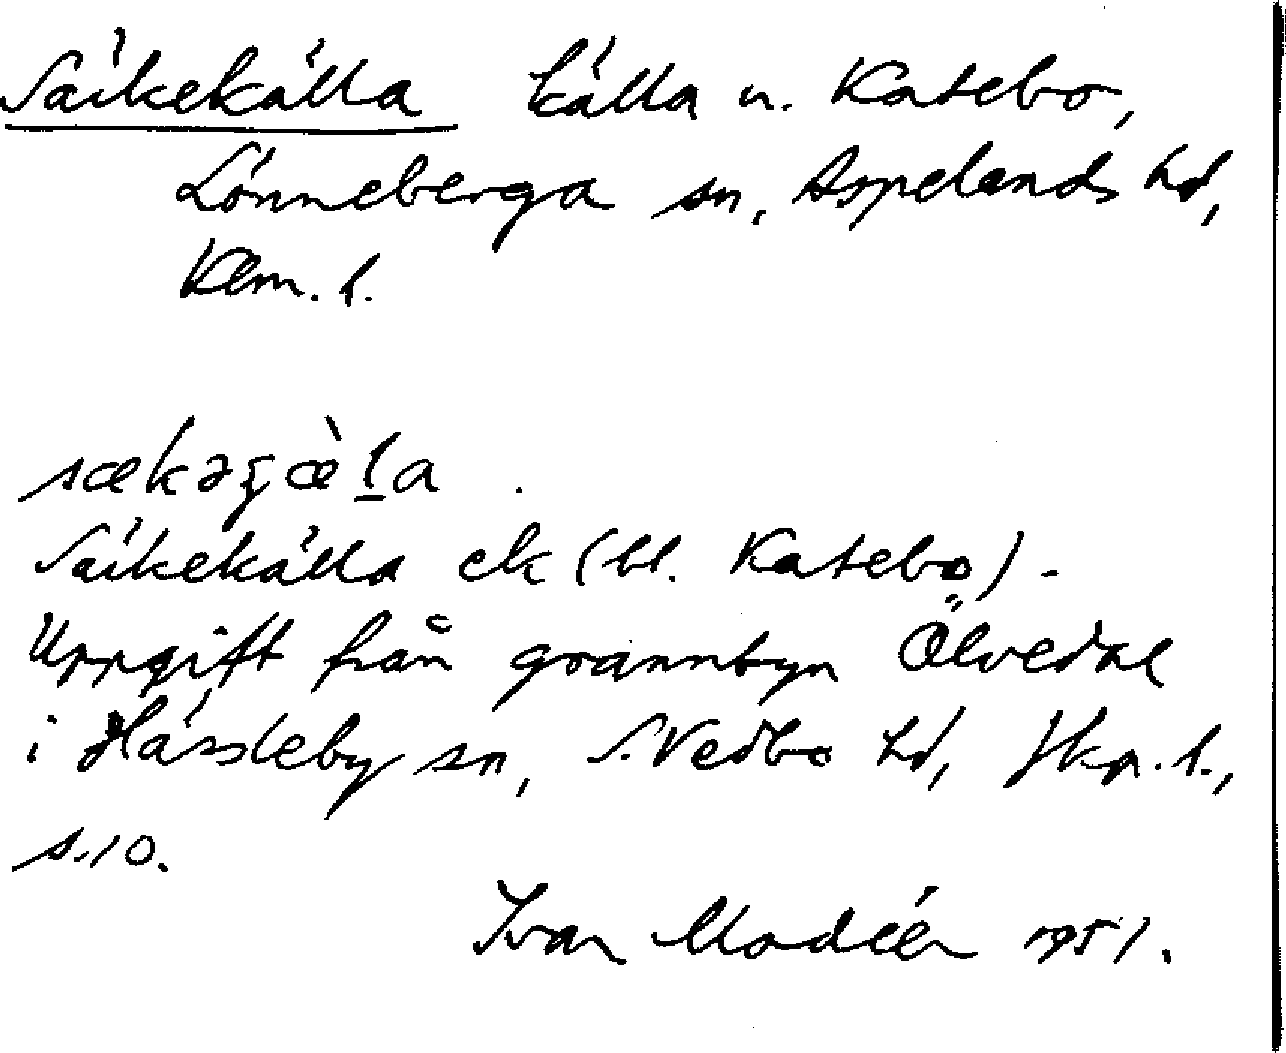 Säkekälla källa n. Katebo,
Lönneberga sn, Aspelands hd,
Klm. l.
sækəɕæ̀ḻa
Säkekälla ek (bl. Katebo) -
Uppgift från grannbyn Ölvedal
i Hässleby sn, S. Vedbo hd, Jkp. l.,
s. 10.
Ivar Modéer 1951.